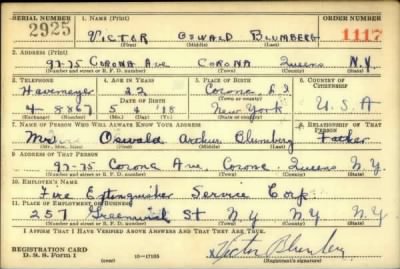 SERIAL NUMBER 1. NAME (Print) ORDER NUMBER
2925 VICTOR OSWALD BLUMBERG 1117
(First) (Middle) (Last)
2. ADDRESS (Print)
97-75 CORONA AVE CORONA QUEENS N.Y.
(Number and street or R. F. D. number) (Town) (County) (State)
3. TELEPHONE 4. AGE IN YEARS 5. PLACE OF BIRTH 6. COUNTRY OF CITIZENSHIP
Havemeyer 22 Corona L.I.
DATE OF BIRTH (Town or county)
4-8867 5 4 '18 New York U.S.A
(Exchange) (Number) (Mo.) (Day) (Yr.) (State or country)
7. NAME OF PERSON WHO WILL ALWAYS KNOW YOUR ADDRESS 8. RELATIONSHIP OF THAT PERSON
Mr. Oswald Arthur Blumberg Father
(Mr., Mrs., Miss) (First) (Middle) (Last)
9. ADDRESS OF THAT PERSON
97-75 Corona Ave. Corona Queens N.Y.
(Number and street or R. F. D. number) (Town) (County) (State)
10. EMPLOYER'S NAME
Fire Extinguisher Service Corp.
11. PLACE OF EMPLOYMENT OR BUSINESS
257 Greenwich St N.Y N.Y N.Y
(Number and street or R. F. D. number) (Town) (County) (State)
I AFFIRM THAT I HAVE VERIFIED ABOVE ANSWERS AND THAT THEY ARE TRUE.
REGISTRATION CARD
D. S. S. Form 1 (over) 16—17105 Victor Blumberg
(Registrant's signature)